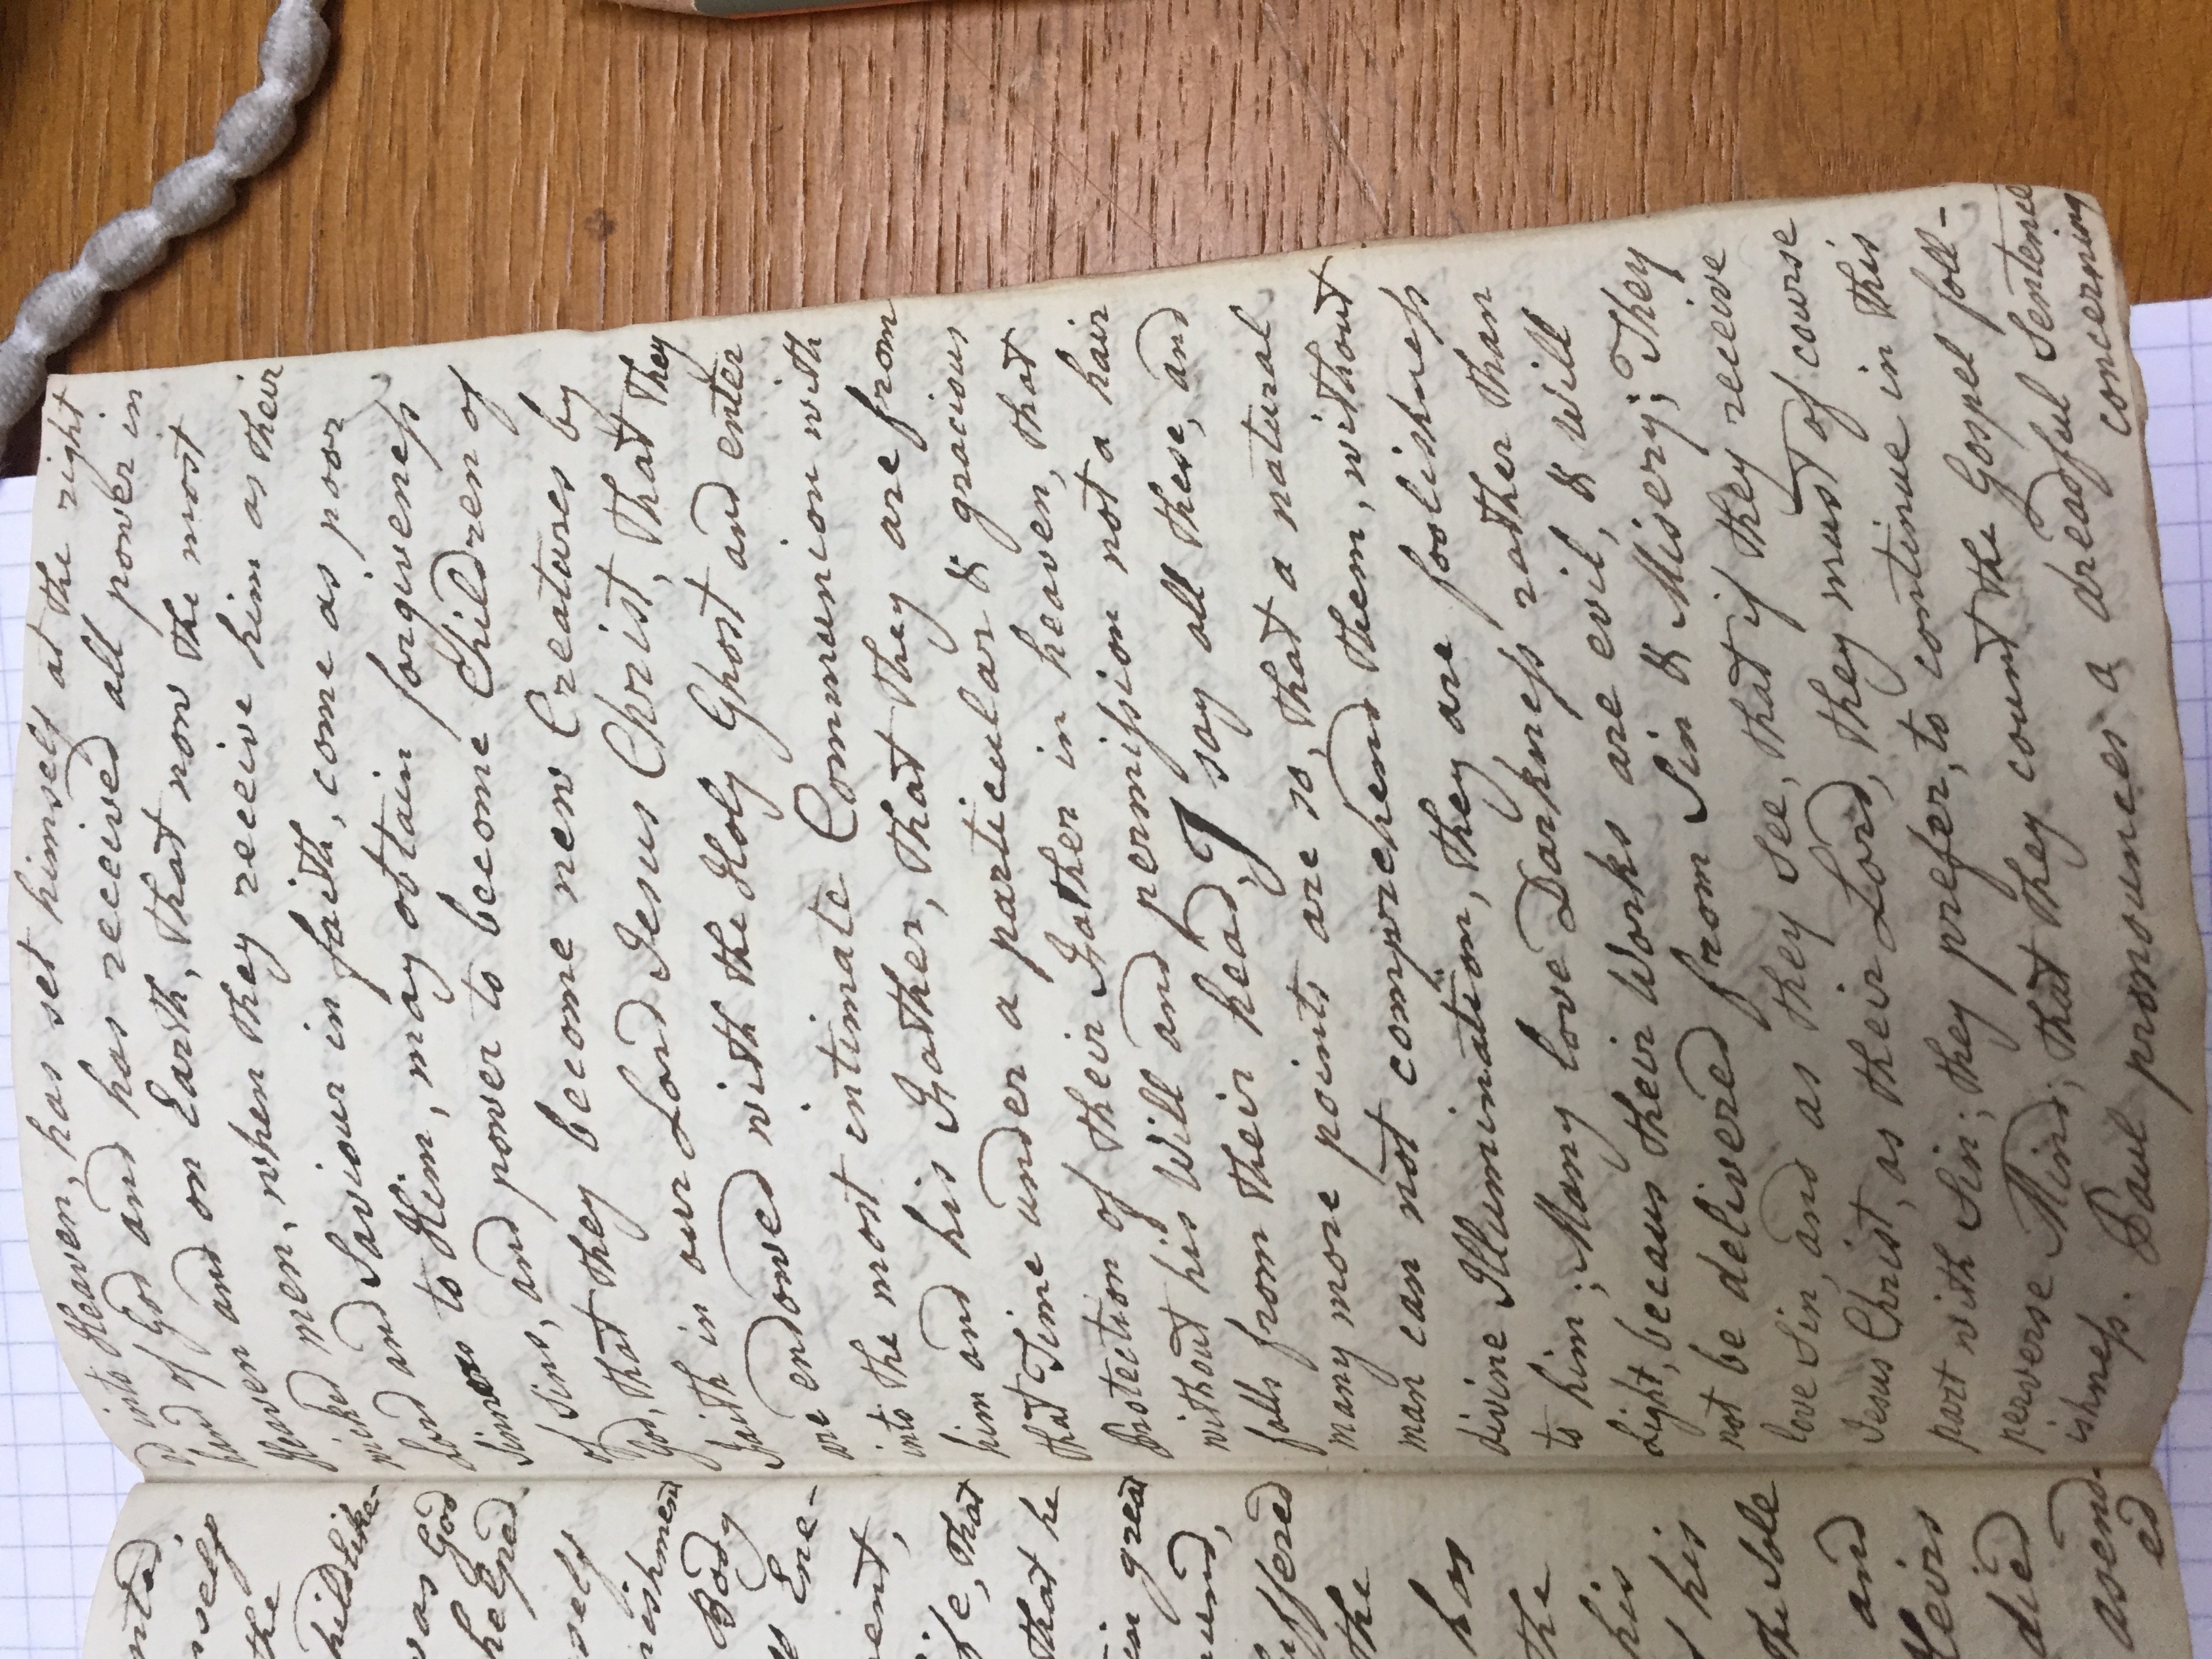 ntad
nself
the
hildlike-
was God
helped
self
nishment
Body
Ene-
ent,
ife, that
that he
in great
und,
uffered
the
has
the
his
his
the Sole
and
Heirs
died
asend-
ed
ed into Heaven, has set himself at the right
hand of God and has received all power in
Heaven and on Earth, that now the most
wicked men, when they receive him as their
Lord and Saviour in faith, come as poor
Sinners to Him, may obtain forgiveness
of Sins, and power to become Children of
God, that they become new Creatures by
Faith in our Lord Jesus Christ, that they
are endowed with the Holy Ghost and enter
into the most intimate Communion with
him and his Father, that they are from
that Time under a particular & gracious
Protection of their Father in heaven, that
without his Will and permission not a hair
falls from their head, I say all these, and
many more points are so, that a natural
man can not comprehend them, without
divine Illumination, they are foolishness
to him; Many love Darkness rather than
Light, becaus their Works are evil, & will
not be delivered from Sin & Misery; They
love Sin, and as they see, that if they receive
Jesus Christ, as their Lord, they must of course
part with Sin; they prefer, to continue in this
perverse Mind; that they count the Gospel foll-
ishness. Paul pronounces a dreadful Sentence
concerning